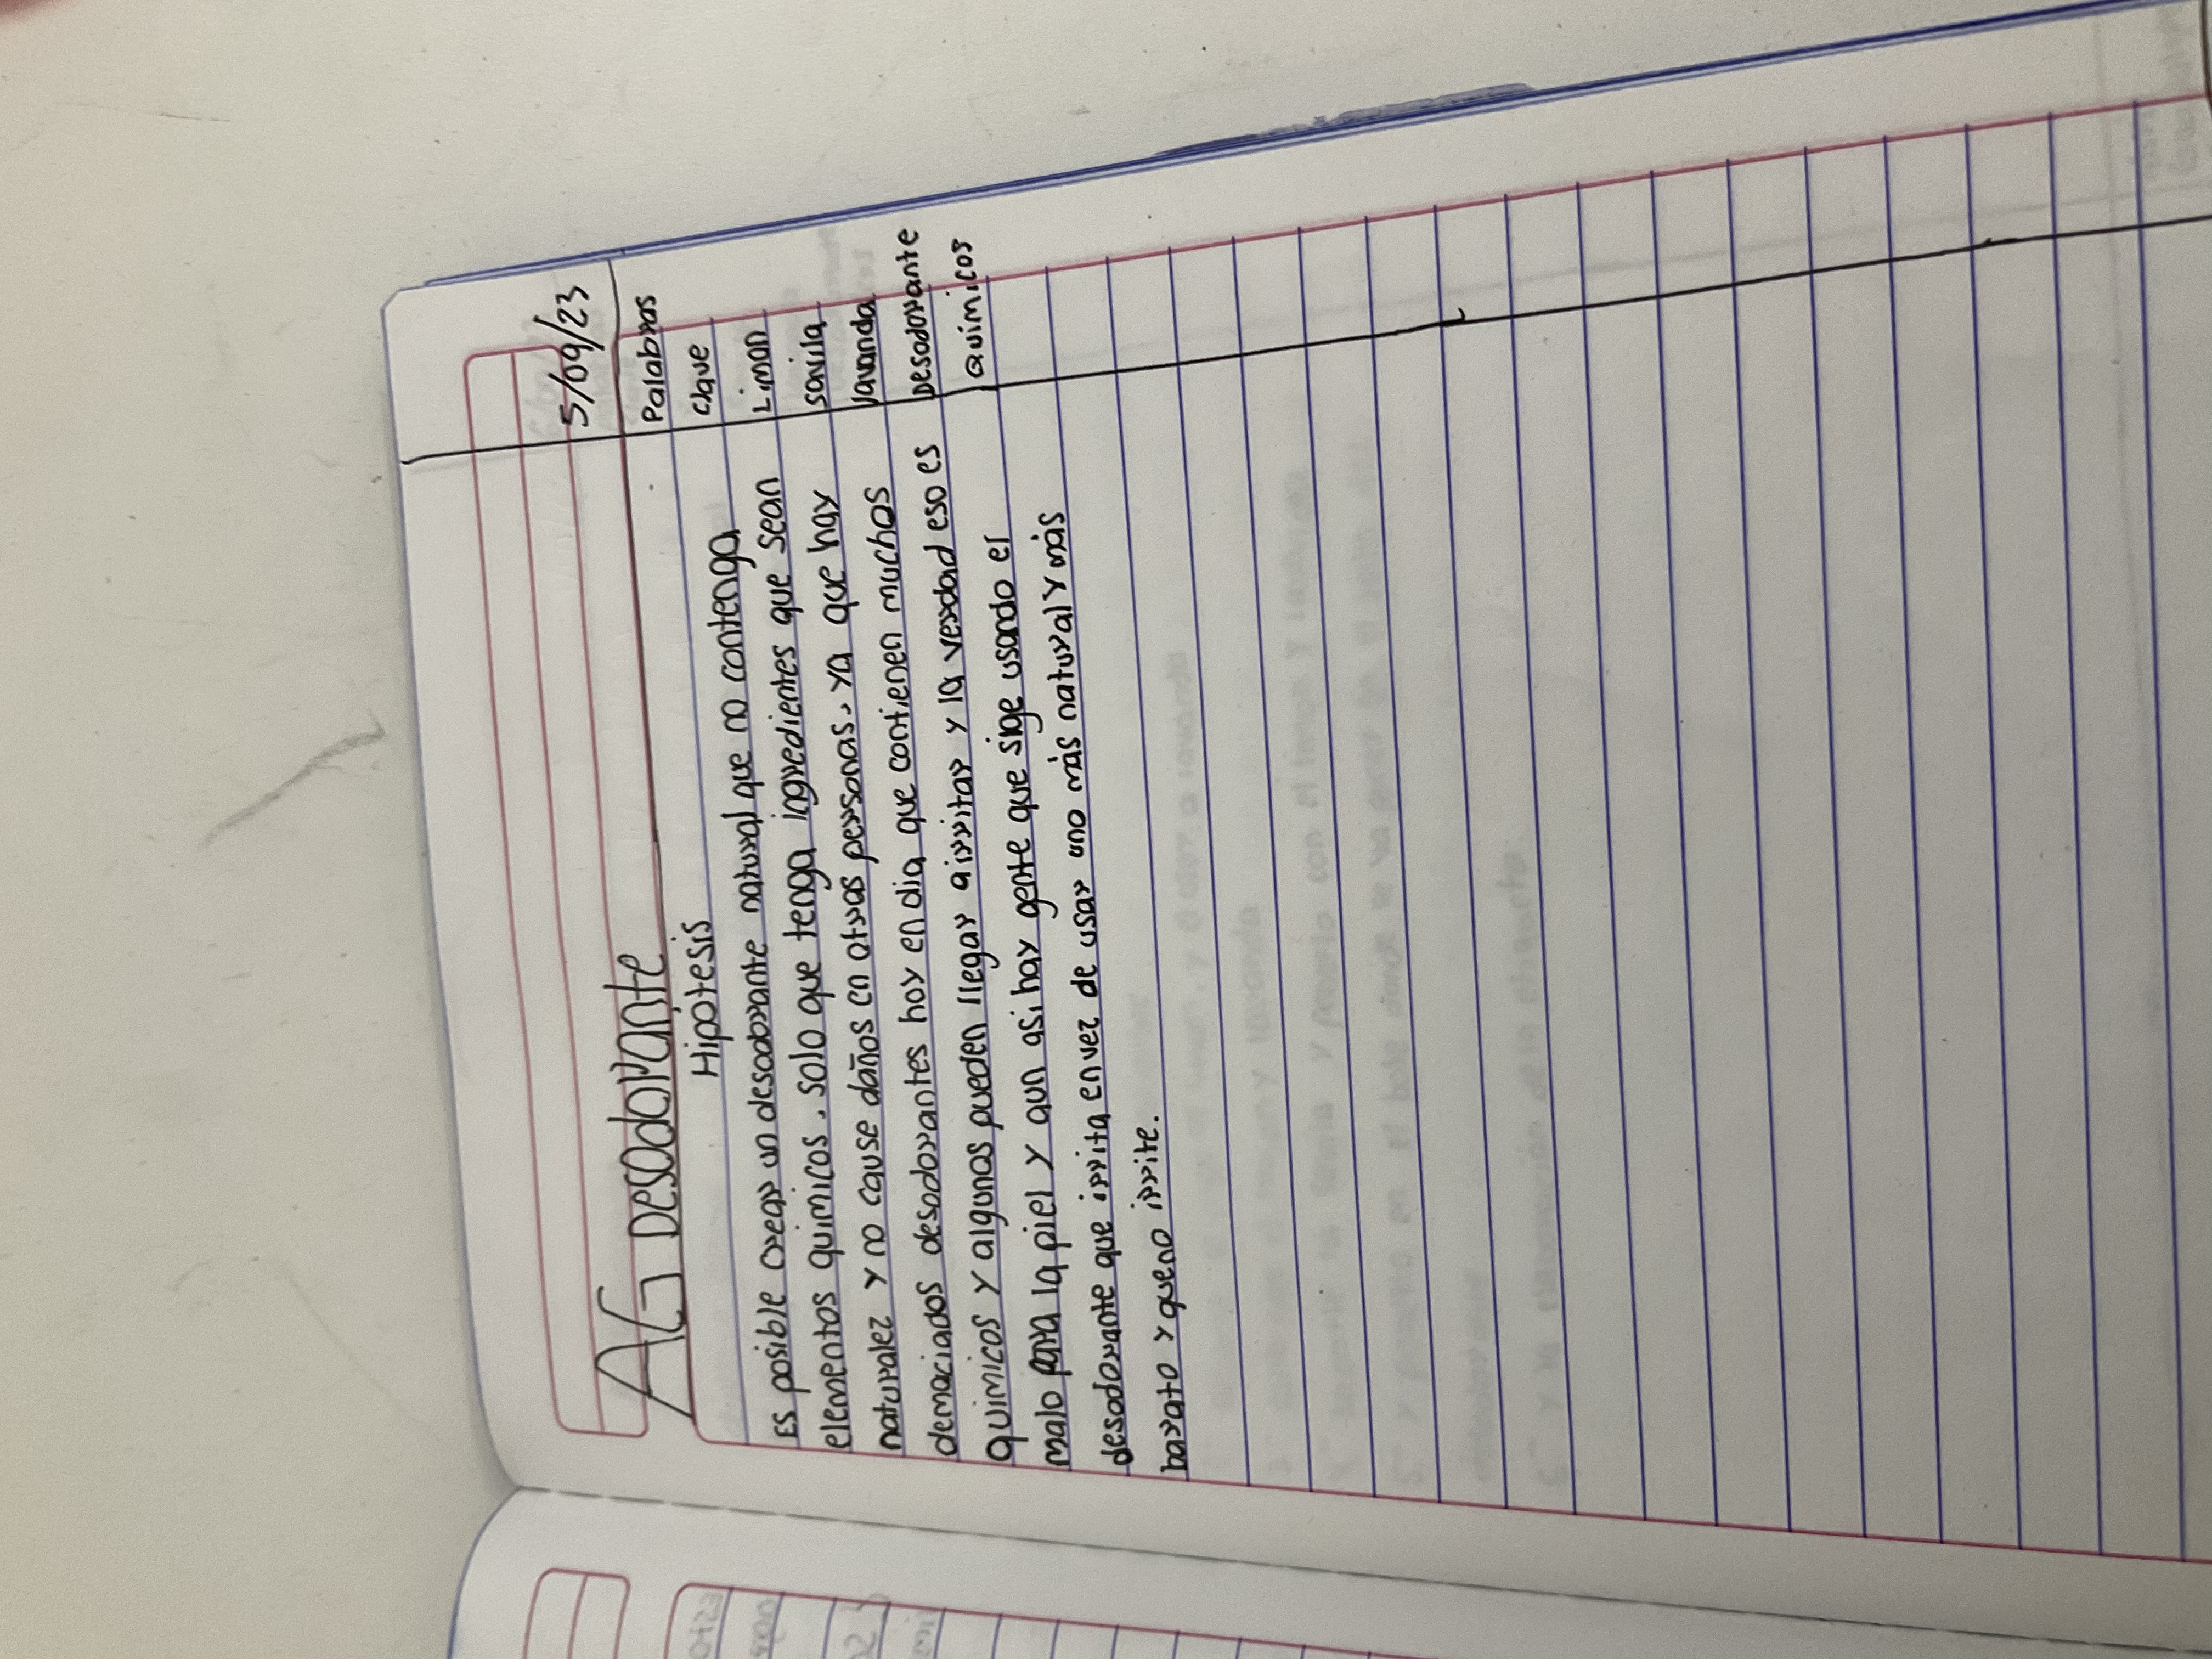 5/09/23
AG Desodorante
Hipotesis
Es posible crear un desodorante natural que no contenga
elementos quimicos, solo que tenga ingredientes que sean
naturalez y no cause daños en otras personas, ya que hay
demaciados desodorantes hoy en dia que contienen muchos
quimicos y algunos pueden llegar a irritar y la verdad eso es
malo para la piel y aun asi hay gente que sige usando el
desodorante que irrita en vez de usar uno más natural y más
barato y que no irrite.
Palabras
clave
Limon
savila
lavanda
Desodorante
Quimicos